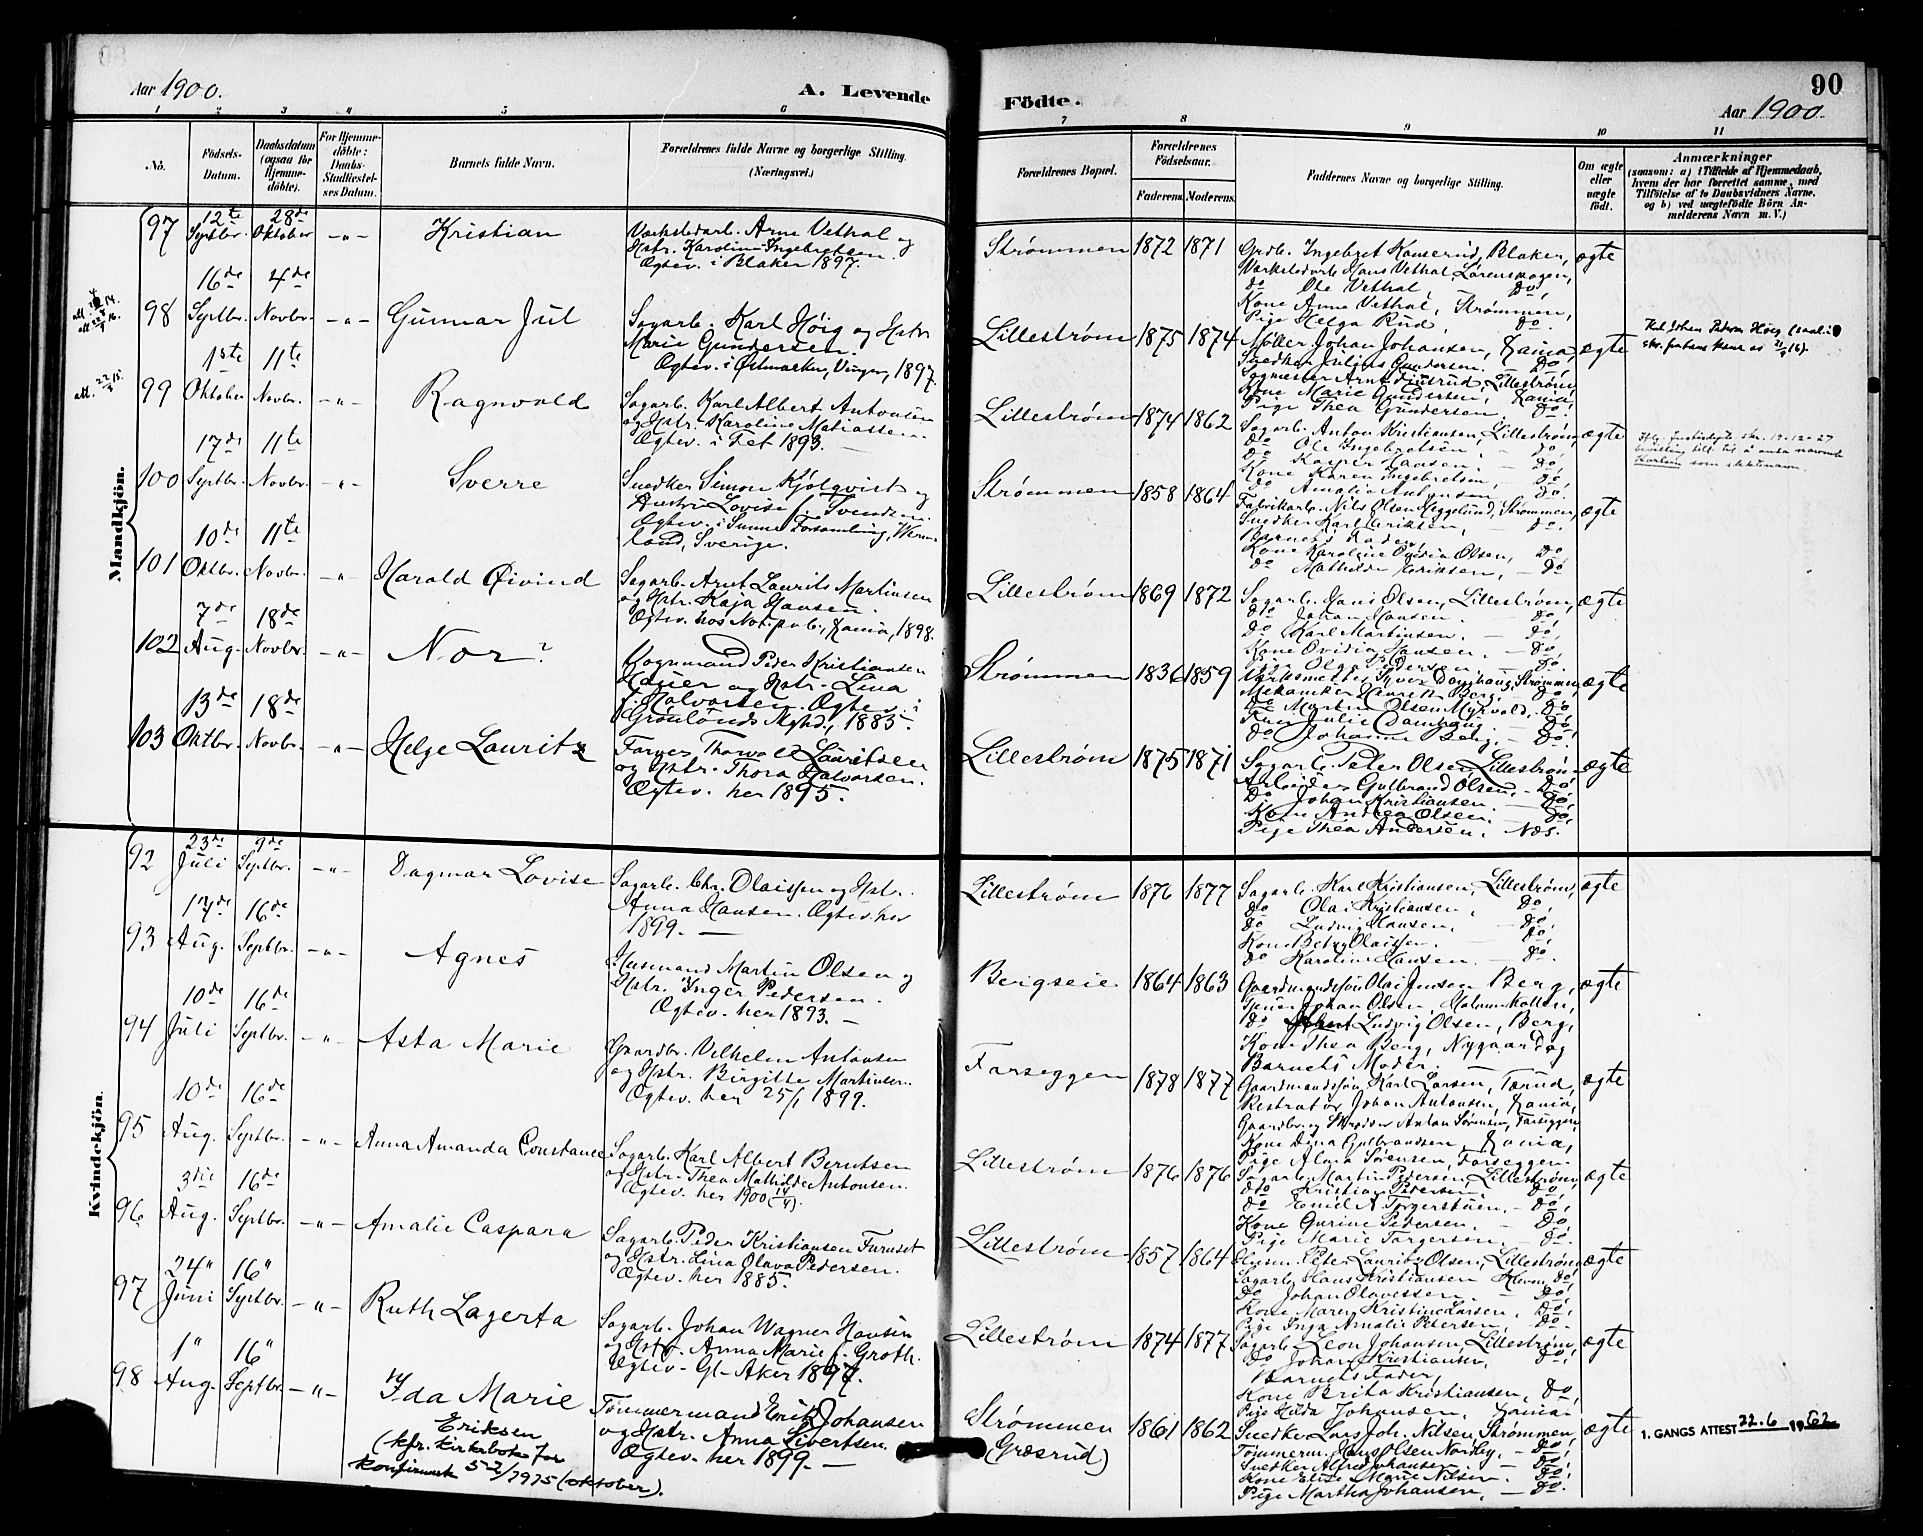 Aar 1900.
A. Levende
Födte.
90
Aar 1900.
1 2 3 4 5 6 7 8 9 10 11
No.
Födsels-Datum.
Daabsdatum (ogsaa for Hjemme-döbte).
For Hjemme-döbte: Daabs-Stadfæstel-ses Datum.
Barnets fulde Navn.
Forældrenes fulde Navne og borgerlige Stilling. (Næringsvei.)
Forældrenes Bopæl.
Forældrenes Födselsaar.
Faderens. Moderens.
Faddernes Navne og borgerlige Stilling.
Om ægte eller uægte födt.
Anmærkninger
(saasom: a) i Tilfælde af Hjemmedaab, hvem der har forrettet samme, med Tilföielse af to Daabsvidners Navne. og b) ved uægtefödte Börn An-melderens Navn m. V.)
Mandkjön.
97 12te Septbr. 28de Oktober -"- Kristian
Værkstedarb. Arne Vethal og
Hstr. Karoline Ingebretsen.
Ægtev. i Blaker 1897.
Strømmen 1872 1871
Grdbr. Ingebret Hanserud, Blaker,
Værkstedarb. Hans Vethal, Lørenskogen,
do Ole Vethal, do,
Kone Anne Vethal, Strømmen,
Pige Helga Rud, do.
ægte
98 16de Septbr. 4de Novbr. -"- Gunnar Jul
Sagarb. Karl Høig og Hstr.
Marie Gundersen.
Ægtev. i Østmarken, Vinger, 1897.
Lillestrøm 1875 1874
Møller Johan Johansen, Xania,
Snedker Julius Gundersen. Do,
Sagmester Lillestrøm,
Kone Marie Gundersen, Xania,
Pige Thea Gundersen, do.
ægte
99 1ste Oktober 11te Novbr. -"- Ragnvald
Sagarb. Karl Albert Antonsen
og Hstr. Karoline Matiassen.
Ægtev. i Fet 1893.
Lillestrøm 1874 1862
Sagarb. Anton Kristiansen, Lillestrøm,
do Ole Ingebretsen, do,
do Kasper Hansen. do,
Kone Karen Ingebretsen, do,
do Amalie Antonsen do.
ægte
100 17de Septbr. 11te Novbr. -"- Sverre
Snedker Simon Kjölqvist og
Hustru Lovise f. Svendsen.
Ægtev. i Sunne Forsamling, Werm-
land, Sverige.
Strømmen 1858 1864
Fabrikarb. Nils Olsen Strømmen,
Snedker Karl Eriksen, do.
Barnets Fader,
Kone Karoline Ovidia Olsen, do
do Mathilde Eriksen, do
ægte
101 10de Oktbr. 11te Novbr. -"- Harald Øivind
Sagarb. Arnt Laurits Martinsen
og Hstr. Kaja Hansen.
Ægtev. hos Not. pub., Xania, 1898.
Lillestrøm 1869 1872
Sagarb. Hans Olsen, Lillestrøm,
do Johan Hansen. do,
do Karl Martinsen. do,
Kone Ovidia Hansen. do,
Pige Olga Pedersen. do.
ægte
102 7de Aug. 18de Novbr. -"- Nor?
Vognmand Peder Kristiansen
Hauer og Hstr. Lina
f. Halvorsen. Ægtev. i
Grönlands Mghd., 1885.
Strømmen 1836 1859
Værksmester Syver Damhaug, Strømmen,
Mekaniker Henrik Berg, do
do Martin Olsen Myrvold. do
Fru Julie Damhaug do,
do Johanne Berg. do.
ægte
103 13de Oktbr. 18de Novbr. -"- Helge Lauritz
Farver Thorvald Lauritsen
og Hstr. Thora Halvorsen.
Ægtev. her 1895.
Lillestrøm 1875 1871
Sagarb. Peter Olsen, Lillestrøm
Arbeider Gulbrand Olsen. do,
do Johan Kristiansen. do,
Kone Anthea Olsen. do,
Pige Thea Andersen, Næs.
ægte
Kvindekjön.
92 23de Juli 9de Septbr. -"- Dagmar Lovise
Sagarb. Chr. Olaissen og Hstr.
Anna Hansen. Ægtev. her
1899.
Lillestrøm 1876 1877
Sagarb. Karl Kristiansen, Lillestrøm,
do Olai Kristiansen, do,
do Ludvig Hansen, do,
Kone Betzy Olaissen. do,
do Karoline Hansen. do.
ægte
93 17de Aug. 16de Septbr. -"- Agnes
Husmand Martin Olsen og
Hstr. Inger Pedersen.
Ægtev. her 1893.
Bergseie 1864 1863
Gaardmandssøn Olai Jensen Berg,
Tjener Johan Olsen,
do Ludvig Olsen, Berg,
Kone Thea Berg, Nygaard og
Barnets Moder.
ægte
94 10de Juli 16de Septbr. -"- Asta Marie
Gaardbr. Vilhelm Antonsen
og Hstr. Birgitte Martinsen.
Ægtev. her 25/1 1899.
Farseggen 1878 1877
Gaardmandssøn Karl Larsen, Tærud,
Restratør Johan Antonsen, Xania,
Gaardbr. og Anton Sørensen, Farseggen
Kone Dina Gulbrandsen, Xania,
Pige Alma Sørensen, Farseggen.
ægte
95 10de Aug. 16de Septbr. -"- Anna Amanda Constance
Sagarb. Karl Albert Berntsen
og Hstr. Thea Mathilde Antonsen.
Ægtev. her 1900
Lillestrøm 1876 1876
Sagarb. Martin Pedersen, Lillestrøm,
do Kristian Pedersen. do,
do Emil A. Torgerstuen. do,
Kone Gurine Pedersen. do,
Pige Marie Torgersen. do.
ægte
96 3die Aug. 16de Septbr. -"- Amalie Caspara
Sagarb. Peder Kristiansen Furuset
og Hstr. Lina Olava Pedersen.
Ægtev. her 1885.
Lillestrøm 1857 1864
Husm. Peter Lauritz Olsen, Lillestrøm
Sagarb. Hans Kristiansen do,
do Johan Olavessen. do,
Kone Maren Kristine Larsen, do,
Pige Inga Amalie Petersen, do.
ægte
97 24" Juni 16" Septbr. -"- Ruth Lagerta
Sagarb. Johan Wagner Hansen
og Hstr. Anna Marie f. Groth.
Ægtev. Gl. Aker 1897.
Lillestrøm 1874 1877
Sagarb. Leon Johansen, Lillestrøm,
do Johan Kristiansen, do,
Barnets Fader,
Kone Brita Kristiansen, do,
Pige Hilda Johansen, Xania.
ægte
98 1" Aug. 16" Septbr. -"- Ida Marie
Eriksen
(kfr. kirkebok for
konfirmerte 1915 (oktober).
Tømmermand Erik Johansen
og Hstr. Anna Sivertsen.
Ægtev. her 1899.
Strømmen
(Græsrud)
1861 1862
Snedker Lars Joh. Nilsen, Strømmen,
Tømmerm. Hans Olsen Nordby, do,
Snedker Alfred Johansen do,
Kone Elise Marie Nilsen. do,
Pige Martha Johansen, do.
ægte
1. GANGS ATTEST 22.6 1962